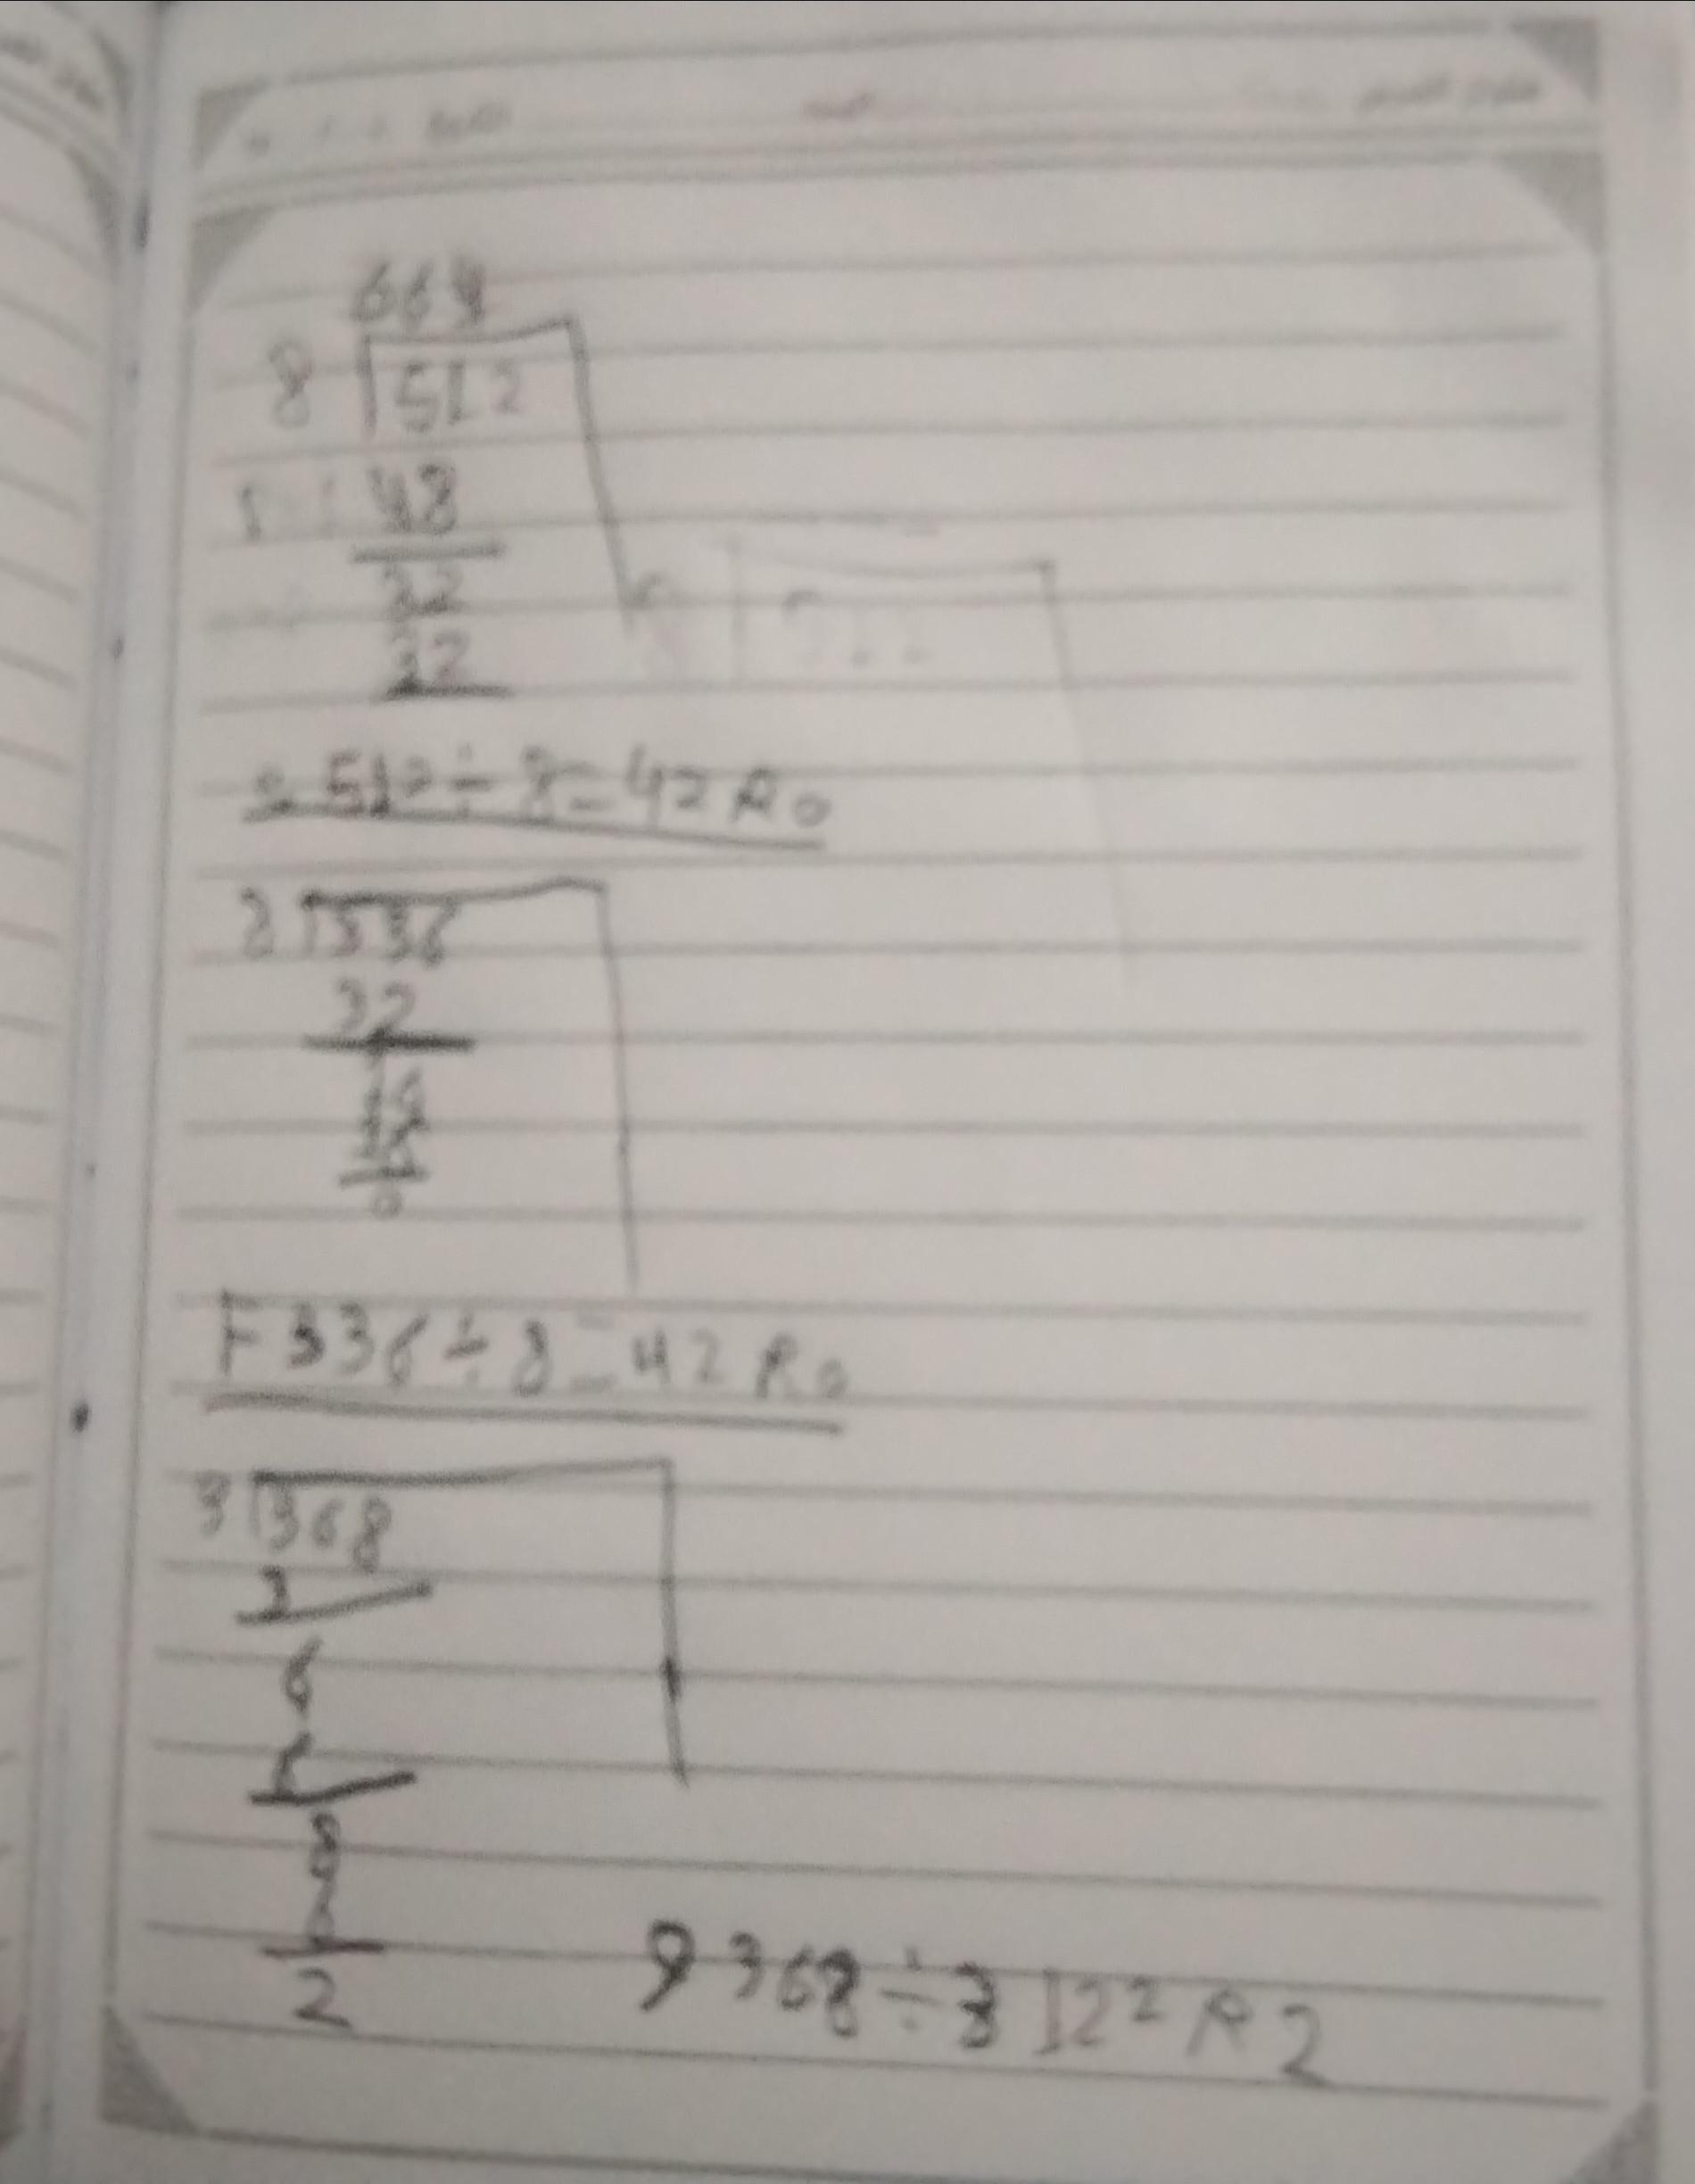 664
8 512
48
32
32
512 ÷ 8 = 42 R0
8 336
32
16
16
0
F 336 ÷ 8 = 42 R0
3 368
3
6
6
8
6
2
9 368 ÷ 3 122 R2